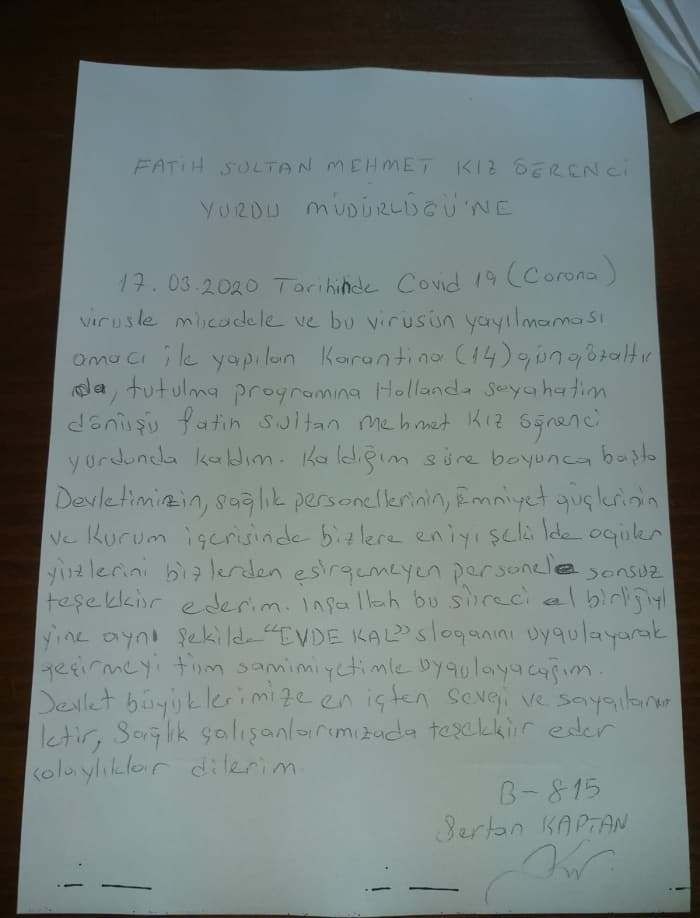 FATİH SULTAN MEHMET KIZ ÖĞRENCİ
YURDU MÜDÜRLÜĞÜ'NE
17.03.2020 Tarihinde Covid 19 (Corona)
virüsle mücadele ve bu virüsün yayılmaması
amacı ile yapılan Karantina (14) gün gözaltın
da, tutulma programına Hollanda seyahatim
dönüşü fatih Sultan Mehmet Kız öğrenci
yurdunda kaldım. Kaldığım süre boyunca başta
Devletimizin, sağlık personellerinin, Emniyet güçlerinin
ve Kurum içerisinde bizlere en iyi şekilde
yüzlerini bizlerden esirgemeyen personele sonsuz
teşekkür ederim. İnşallah bu süreci el birliğiyl
yine aynı şekilde "EVDE KAL" sloganını uygulayarak
geçirmeyi tüm samimiyetimle uygulayacağım.
Devlet büyüklerimize en içten sevgi ve saygılarımı
letir, Sağlık çalışanlarımızada teşekkür eder
kolaylıklar dilerim.
B-815
Sertan KAPTAN